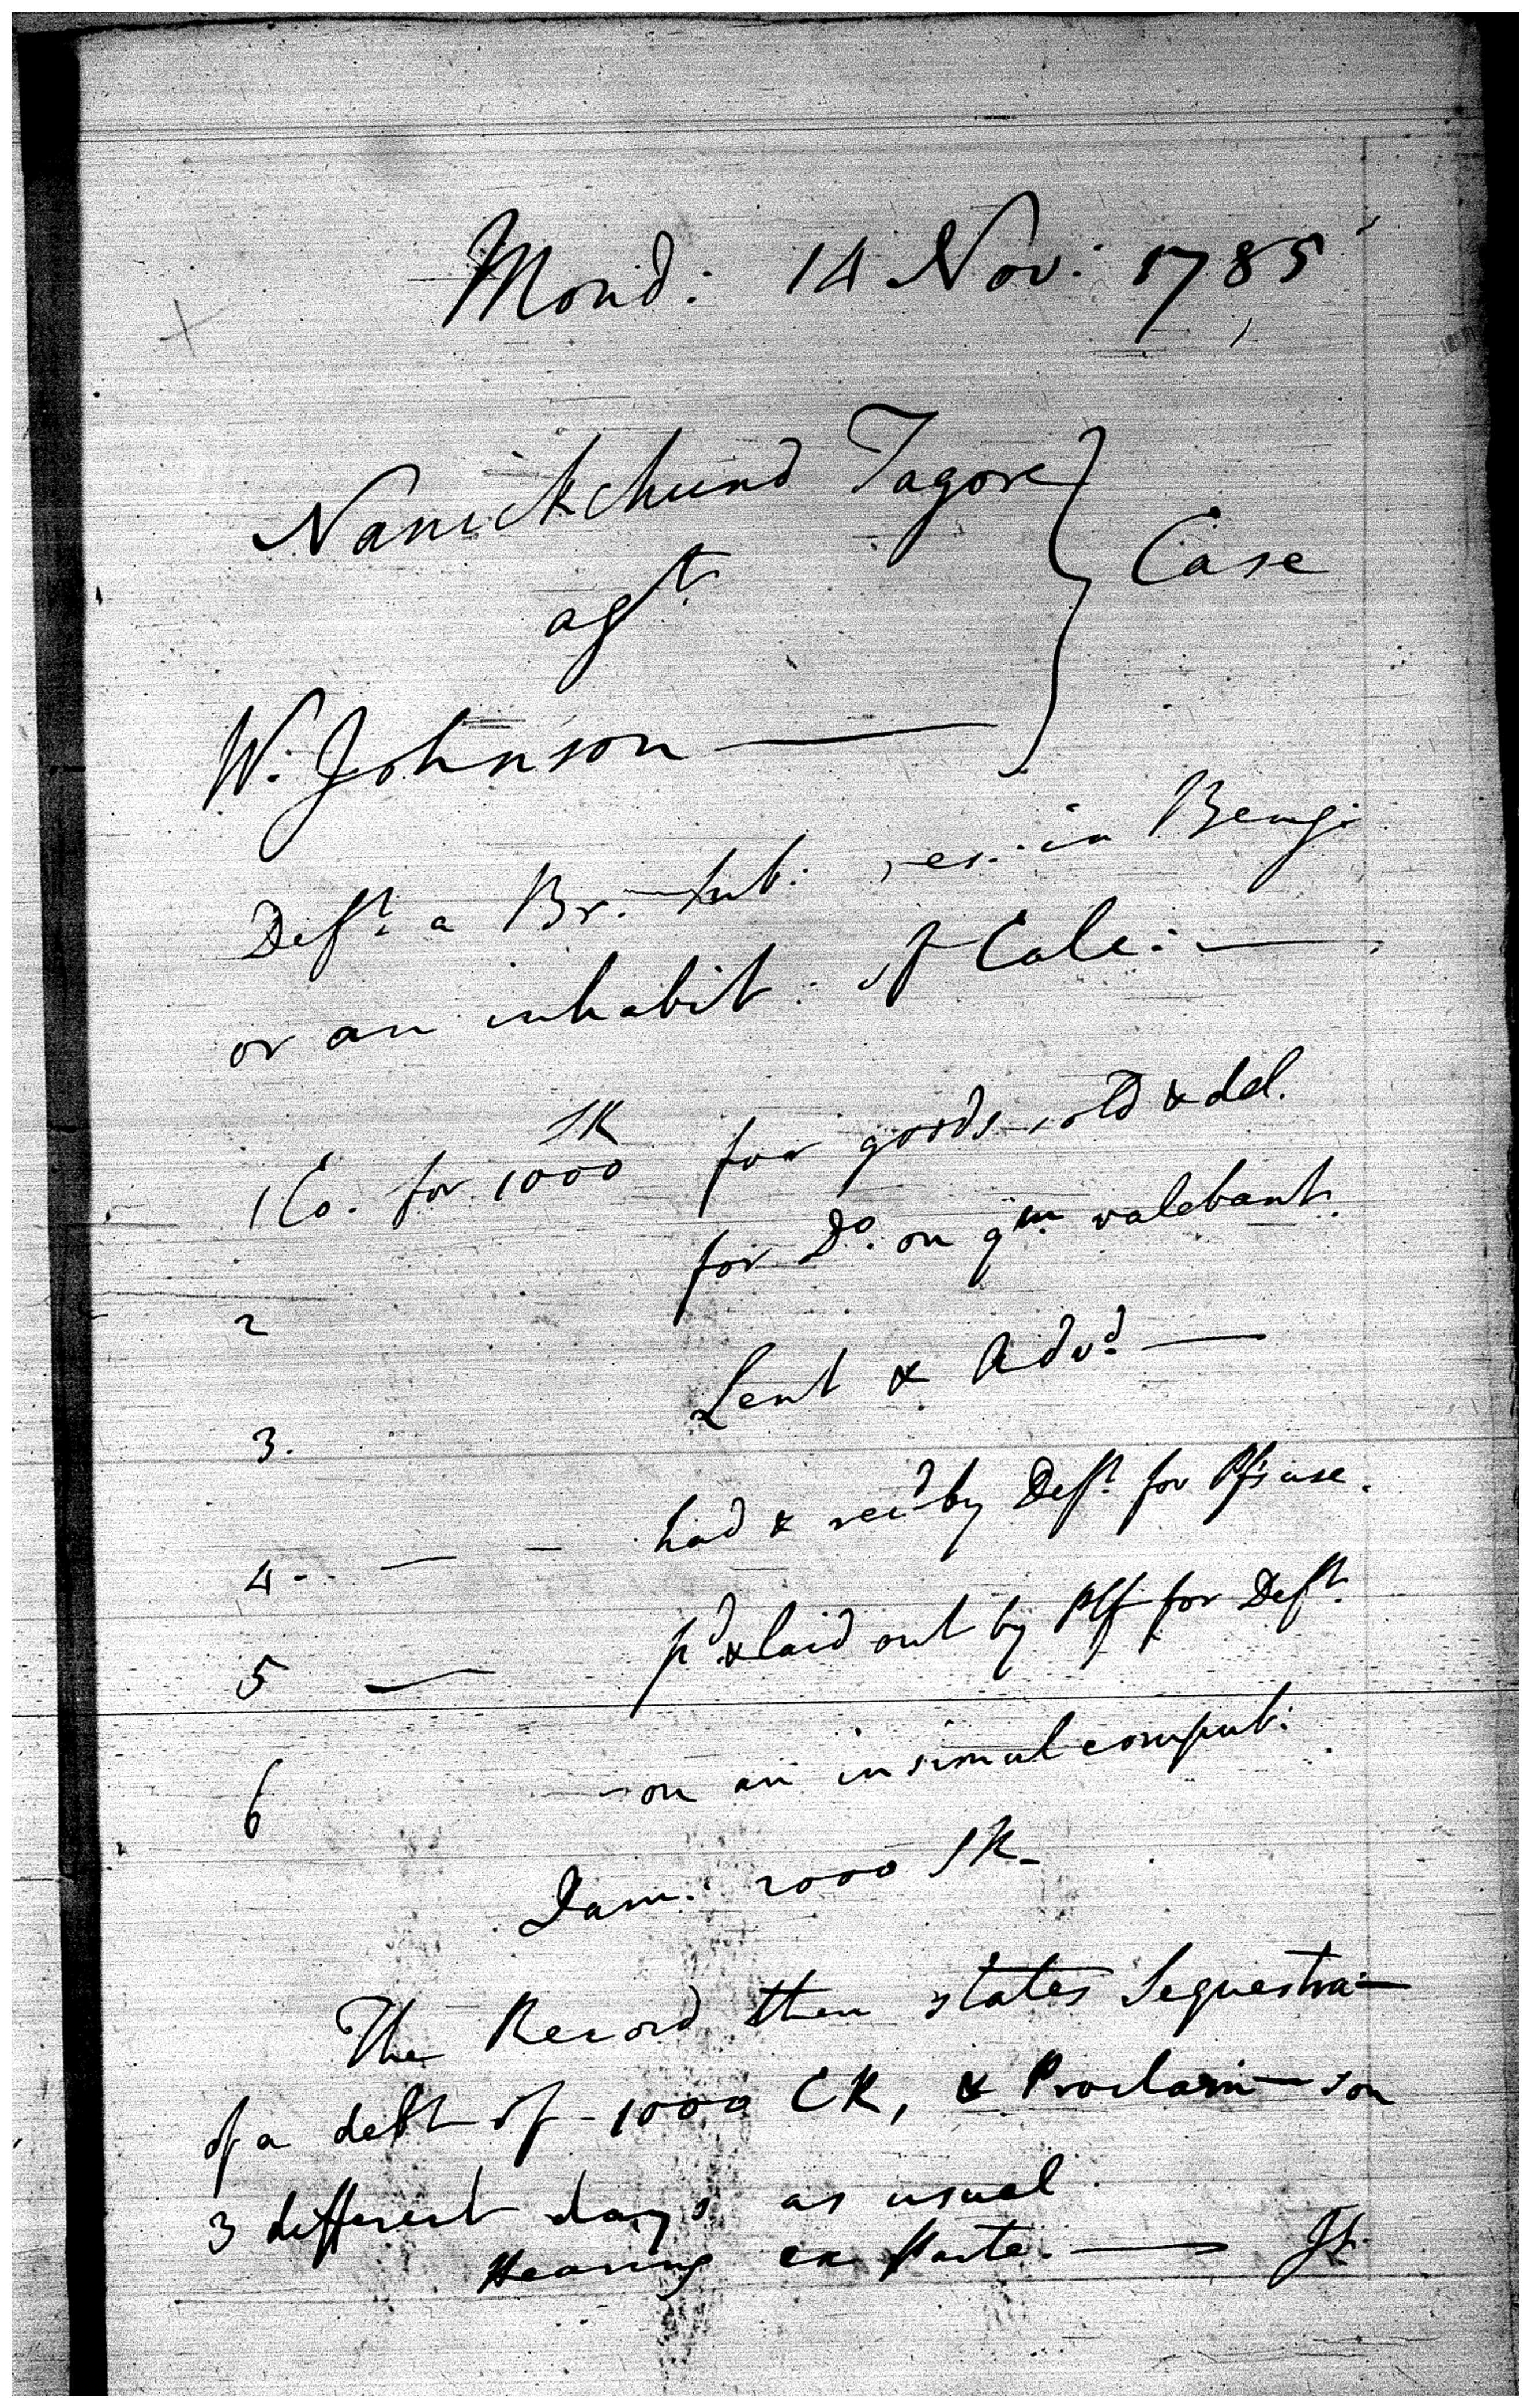 Mond: 14 Nov: 1785
Nanickchund Tagore
agt.
Case
W. Johnson —
Deft. a Br. Sub: res: in Beng:
or an inhabit: of Calc: —
SR
1 Co. for 1000 for goods sold & del.
2 for Do. on qm. valebant.
3. Lent & Advd. —
4 - — - had & recd by Deft. for Pf's use.
5 — pd. & laid out by Plf for Deft.
6 - on an insimul comput:
Dam: 2000 SR -
The Record then states Sequestra—
of a debt of 1000 CR, & Proclam— on
3 different days as usual
Hearing ex Parte. —